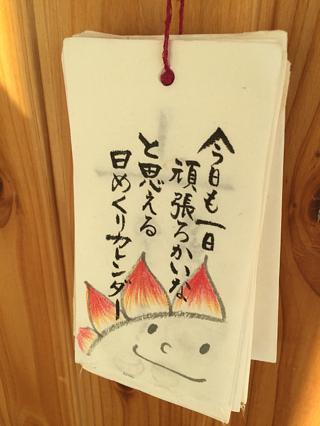 今日も一日
頑張ろかいな
と思える
日めくりカレンダー